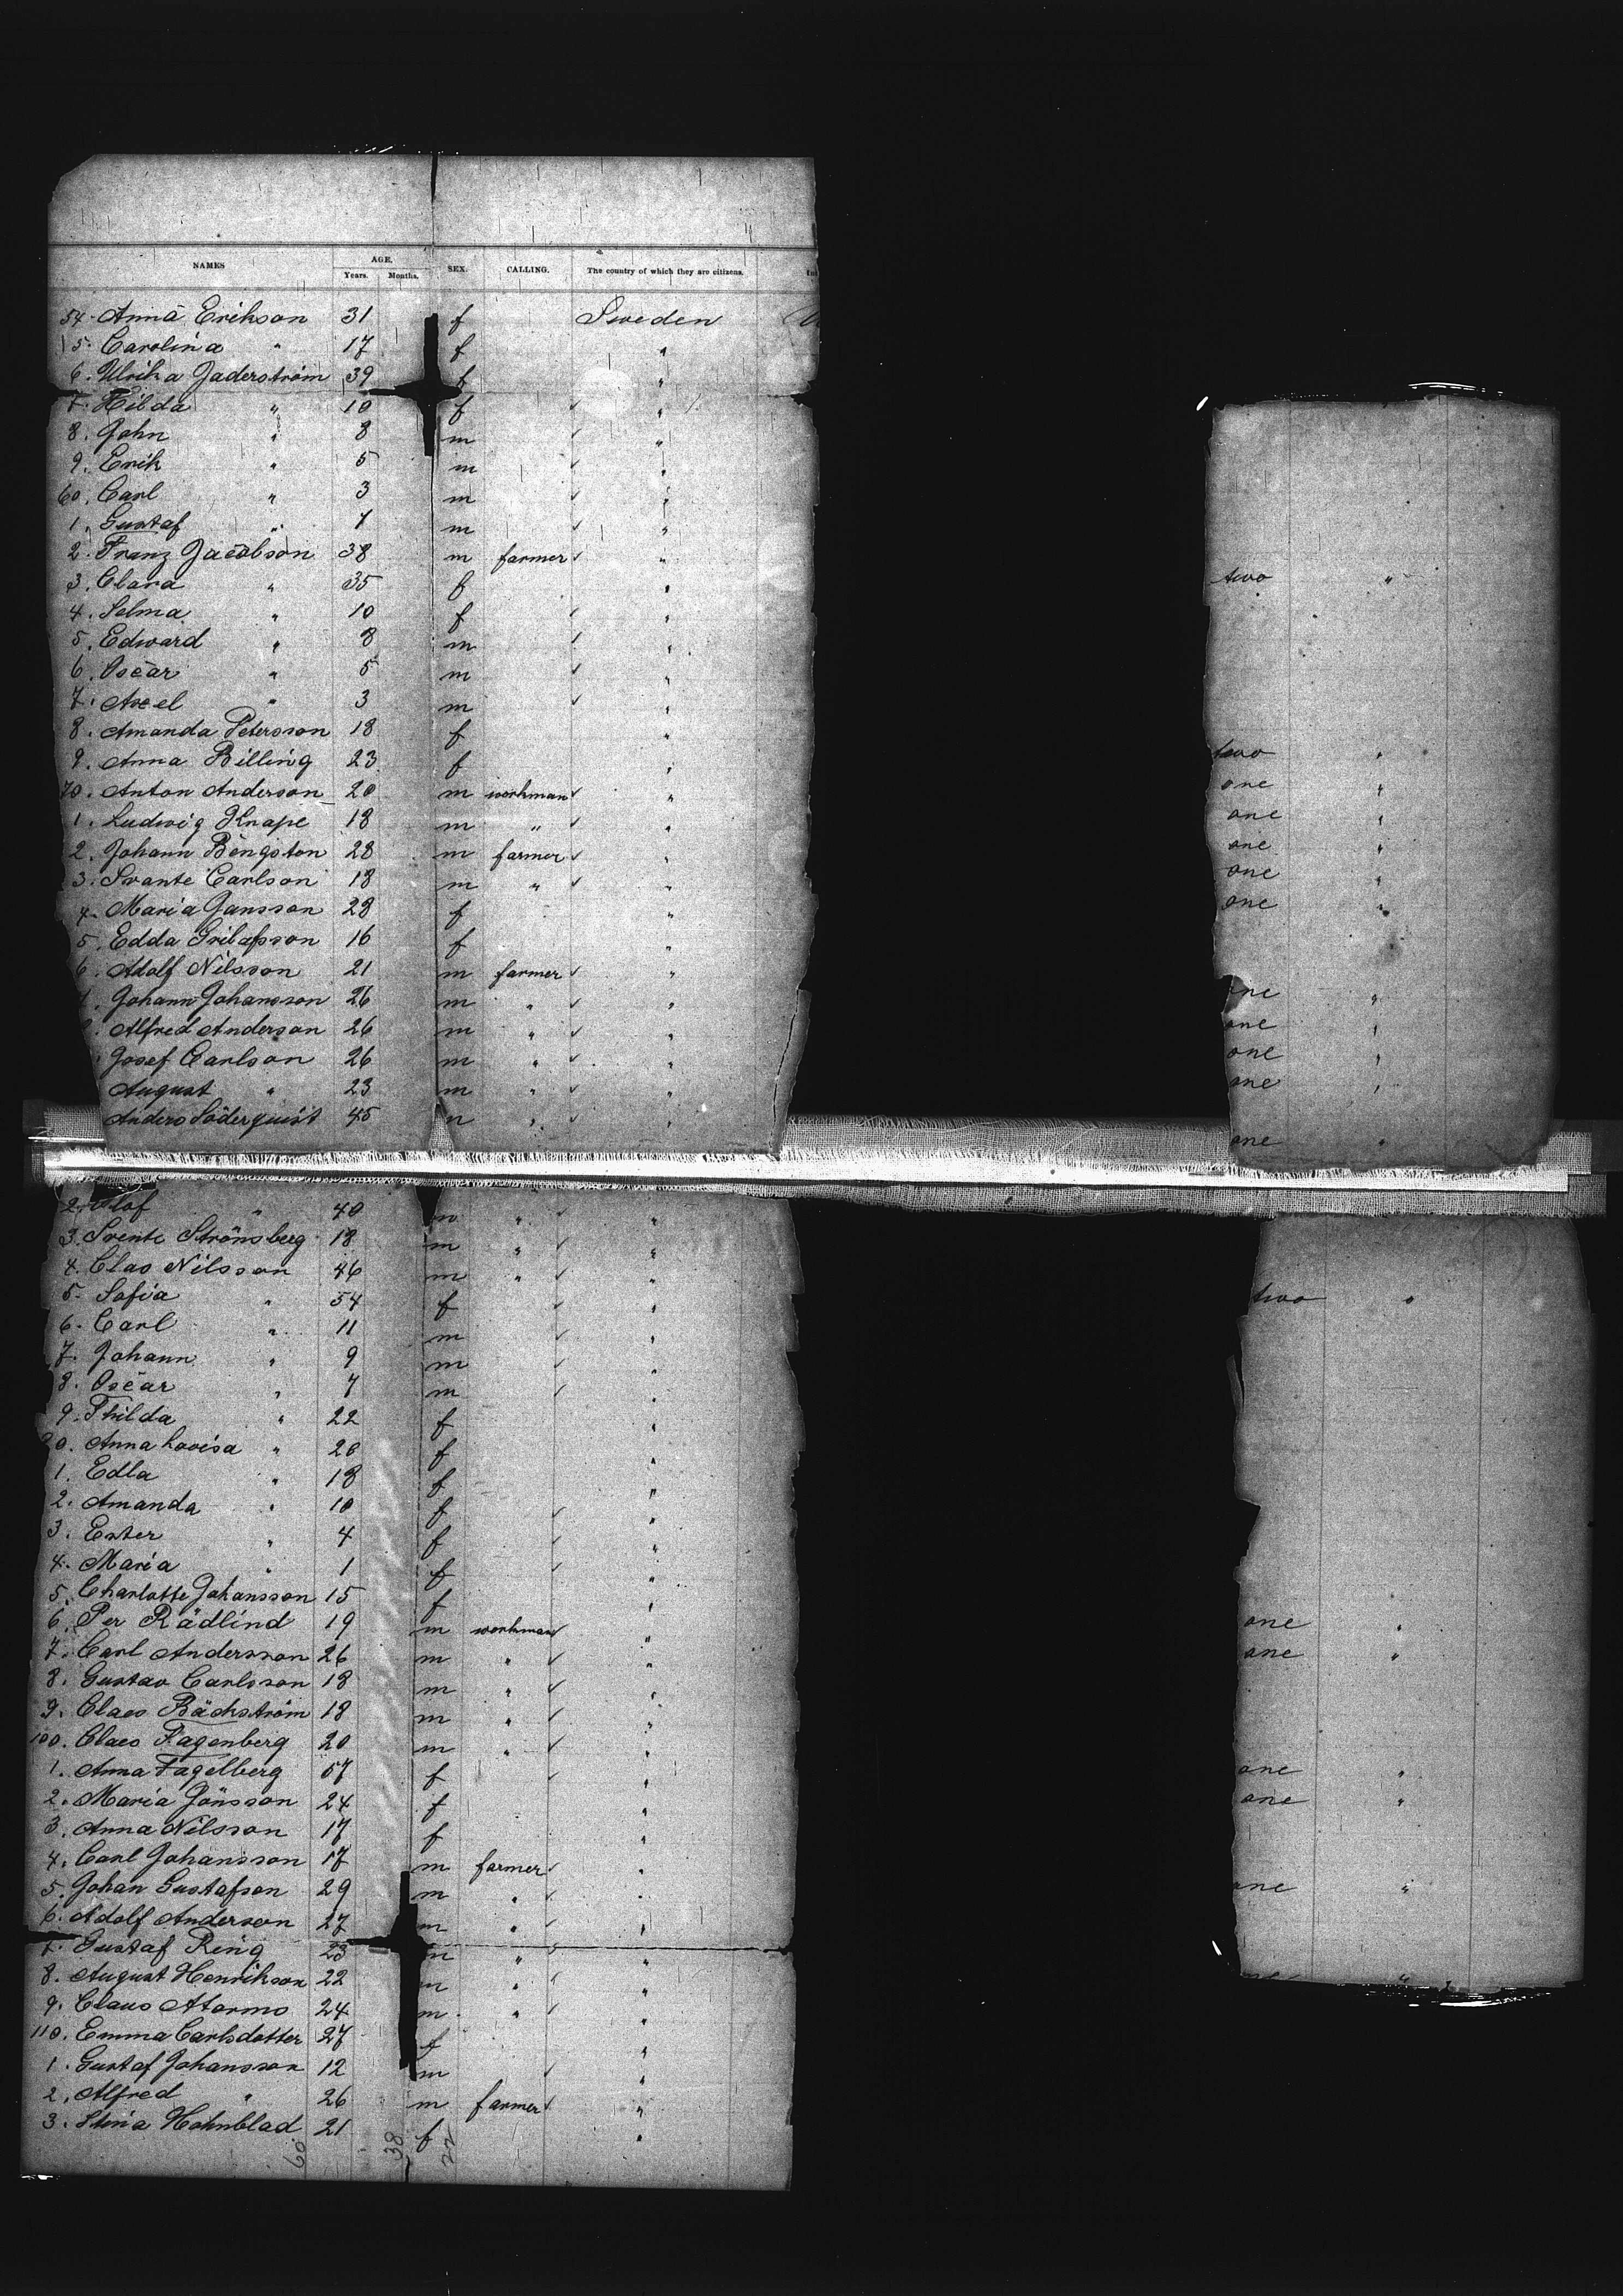 NAMES AGE. Years. Months. SEX. CALLING. The country of which they are citizens.
54. Anna Erikson 31 f Sweden
5. Carolina " 17 f "
6. Ulrika Jaderström 39 f "
7. Hilda " 10 f "
8. John " 8 m "
9. Erik " 5 m "
60. Carl " 3 m "
1. Gustaf " 1 m "
2. Franz Jacobson 38 m farmer "
3. Clara " 35 f " two "
4. Selma " 10 f "
5. Edward " 8 m "
6. Oscar " 5 m "
7. Axel " 3 m "
8. Amanda Petersson 18 f "
9. Anna Billing 23 f " two "
70. Anton Anderson 20 m workman " one "
1. Ludwig Knape 18 m " " one "
2. Johann Bengston 28 m farmer " one "
3. Svante Carlson 18 m " " one "
4. Maria Jansson 28 f " one "
5. Edda 16 f "
6. Adolf Nilsson 21 m farmer "
Johann Johansson 26 m " " one "
Alfred Anderson 26 m " " one "
Josef Carlson 26 m " " one "
August " 23 m " " one "
Anders Söderquist 45 m " "
one "
2. Olof " 40 m " "
3. Svente Strömsberg 18 m " "
4. Clas Nilsson 46 m " "
5. Sofia " 54 f " two "
6. Carl " 11 m "
7. Johann " 9 m "
8. Oscar " 7 m "
9. Thilda " 22 f "
90. Anna Lovisa " 20 f "
1. Edla " 18 f "
2. Amanda " 10 f "
3. Ester " 4 f "
4. Maria " 1 f "
5. Charlotte Johansson 15 f "
6. Per Rädlind 19 m workman " one "
7. Carl Andersson 26 m " " one "
8. Gustav Carlsson 18 m " "
9. Claes Bäckström 18 m " "
100. Claes Fagenberg 20 m " "
1. Anna Fagelberg 57 f " one "
2. Maria Jönsson 24 f " one "
3. Anna Nilsson 17 f "
4. Carl Johansson 17 m farmer "
5. Johan Gustafson 29 m " " one "
6. Adolf Anderson 27 m " "
7. Gustaf Ring 23 m " "
8. August Henrikson 22 m " "
9. Claus 24 m " "
110. Emma Carlsdotter 27 f "
1. Gustaf Johansson 12 m "
2. Alfred " 26 m farmer "
3. Stina Hohnblad 21 f "
60 38 22